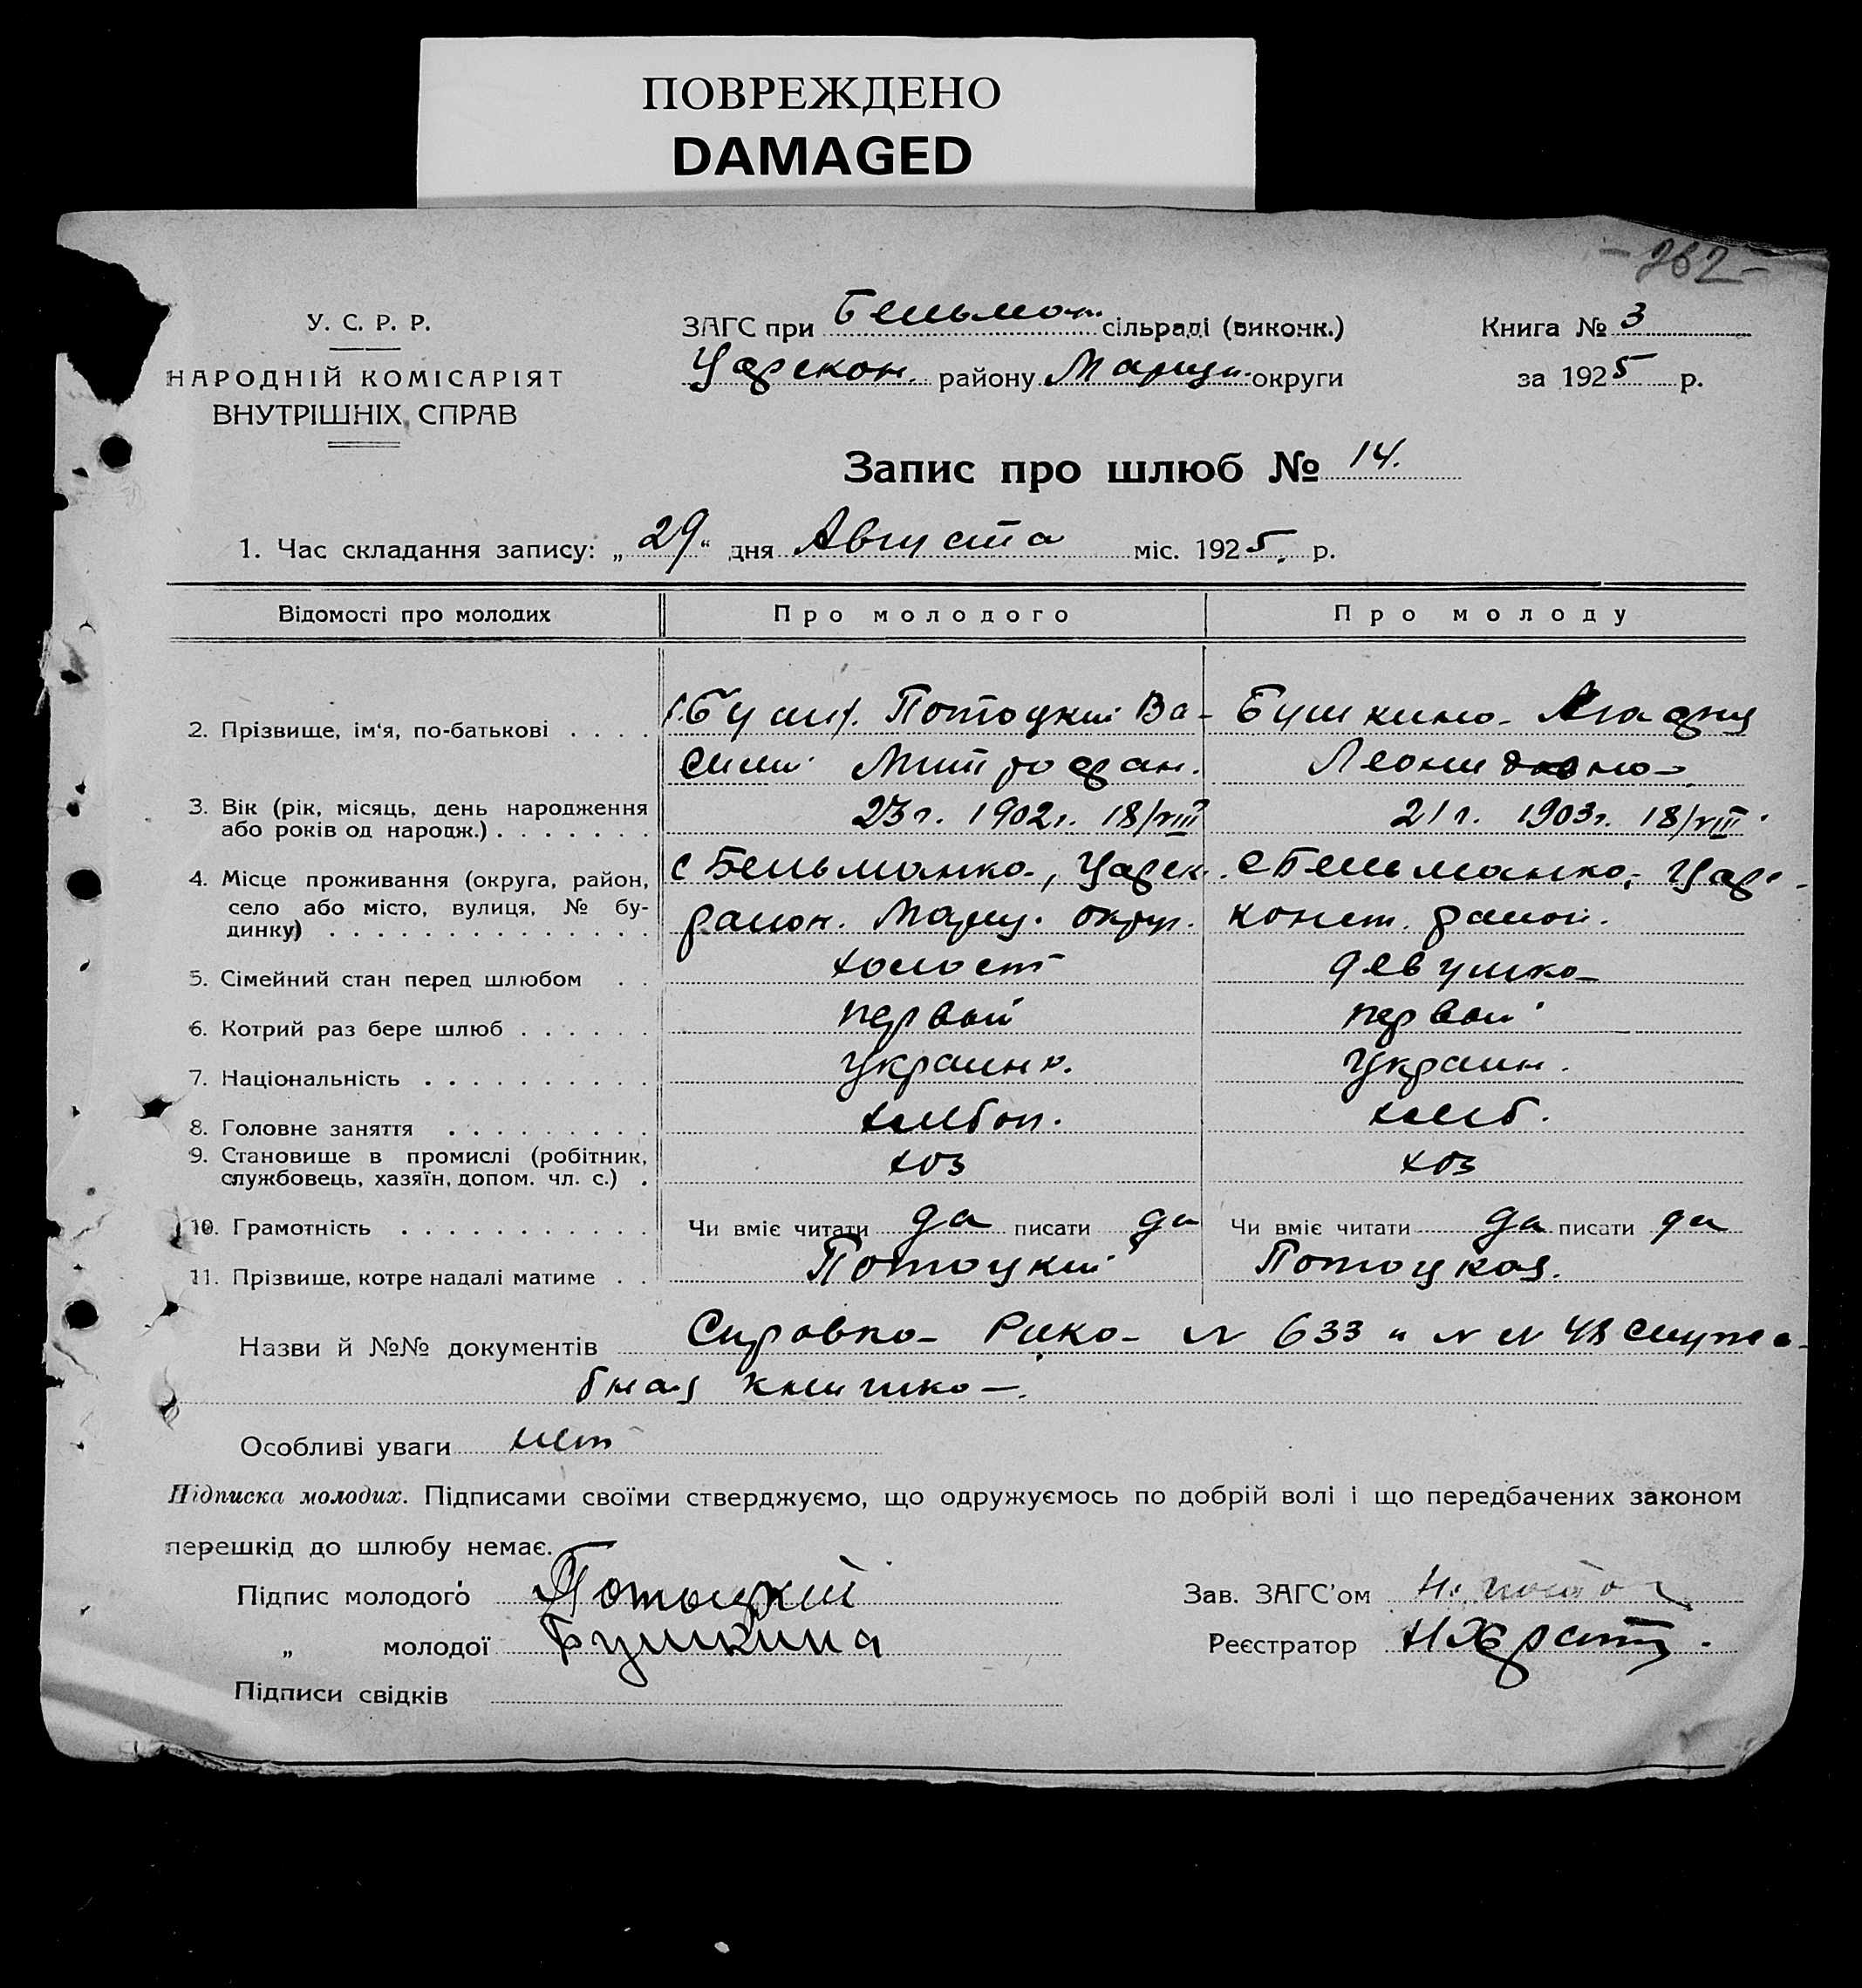 ПОВРЕЖДЕНО
DAMAGED
- 262 -
У. С. Р. Р.
НАРОДНІЙ КОМІСАРІЯТ
ВНУТРІШНІХ СПРАВ
ЗАГС при Бельман. сільраді (виконк.)
Царекон. району Мариуп. округи
Книга № 3
за 1925 р.
Запис про шлюб № 14.
1. Час складання запису: „29“ дня Августа міс. 1925. р.
Відомості про молодих Про молодого Про молоду
2. Прізвище, ім‘я, по-батькові . . . .
Потоцкий Ва-
силий Митрофан.
Бушкина Агафия
Леонидовна
3. Вік (рік, місяць, день народження
або років од народж.) . . . . . . .
23 г. 1902 г. 18/VIII
21 г. 1903 г. 18/VIII
4. Місце проживання (округа, район,
село або місто, вулиця, № бу-
динку) . . . . . . . . . . . . . .
с Бельманка, Царек.
район. Мариу. округ.
с Бельманка, Царе-
конст. район.
5. Сімейний стан перед шлюбом . . холост девушка
6. Котрий раз бере шлюб . . . . . . первый первый
7. Національність . . . . . . . . . . украин. украин.
8. Головне заняття . . . . . . . . . хлебоп. хлеб.
9. Становище в промислі (робітник,
службовець, хазяїн, допом. чл. с.) .
хоз хоз
10. Грамотність . . . . . . . . . . . Чи вміє читати да писати да Чи вміє читати да писати да
11. Прізвище, котре надалі матиме . . Потоцкий Потоцкая.
Назви й №№ документів Справка Рика № 633 и № 48 служе-
бная книжка.
Особливі уваги нет
Підписка молодих. Підписами своїми стверджуємо, що одружуємось по добрій волі і що передбачених законом
перешкід до шлюбу немає.
Підпис молодого Потоцкий
„ молодої Бушкина
Зав. ЗАГС’ом
Реєстратор
Підписи свідків